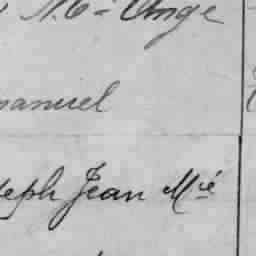 Ange
anuel
seph Jean Mie